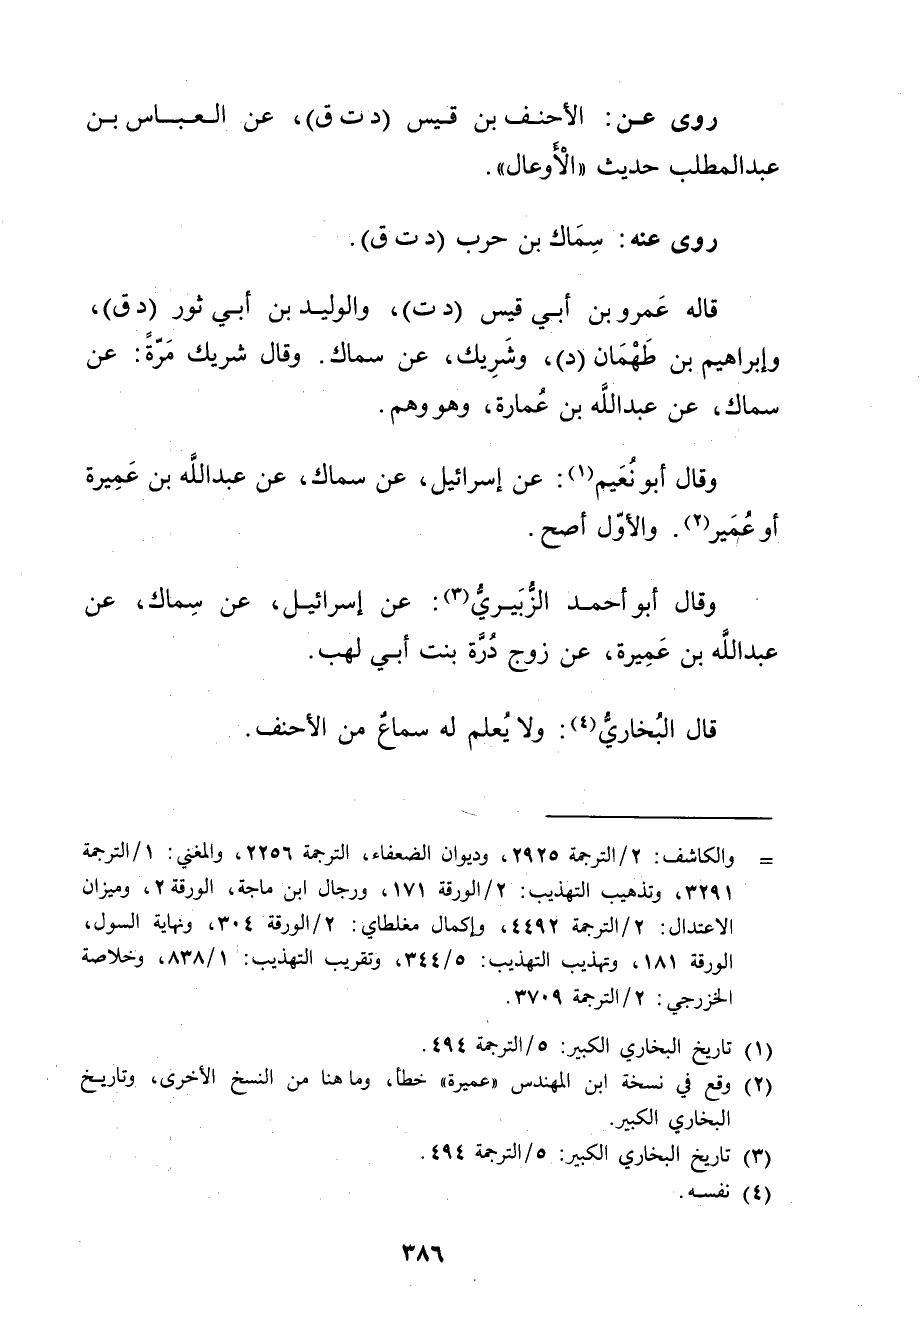 روى عن: الأحنف بن قيس (د ت ق)، عن العباس بن
عبدالمطلب حديث «الْأَوعال».
روى عنه: سِمَاك بن حرب (د ت ق).
قاله عَمرو بن أبي قيس (د ت)، والوليد بن أبي ثور (د ق)،
وإبراهيم بن طَهْمَان (د)، وشَرِيك، عن سماك. وقال شريك مَرّةً: عن
سماك، عن عبدالله بن عُمارة، وهو وهم.
وقال أبو نُعَيم(١): عن إسرائيل، عن سماك، عن عبداللَّه بن عَمِيرة
أو عُمَير(٢). والأوّل أصح.
وقال أبو أحمد الزُّبَيريُّ(٣): عن إسرائيل، عن سِماك، عن
عبداللَّه بن عَمِيرة، عن زوج دُرَّة بنت أبي لهب.
قال البُخاريُّ(٤): ولا يُعلم له سماعٌ من الأحنف.
= والكاشف: ٢/الترجمة ٢٩٢٥، وديوان الضعفاء، الترجمة ٢٢٥٦، والمغني: ١/الترجمة
٣٢٩١، وتذهيب التهذيب: ٢/الورقة ١٧١، ورجال ابن ماجة، الورقة ٢، وميزان
الاعتدال: ٢/الترجمة ٤٤٩٢، وإكمال مغلطاي: ٢/الورقة ٣٠٤، ونهاية السول،
الورقة ١٨١، وتهذيب التهذيب: ٣٤٤/٥، وتقريب التهذيب: ٨٣٨/١، وخلاصة
الخزرجي: ٢/الترجمة ٣٧٠٩.
(١) تاريخ البخاري الكبير: ٥/الترجمة ٤٩٤.
(٢) وقع في نسخة ابن المهندس «عميرة» خطأ، وما هنا من النسخ الأخرى، وتاريخ
البخاري الكبير.
(٣) تاريخ البخاري الكبير: ٥/الترجمة ٤٩٤.
(٤) نفسه.
٣٨٦